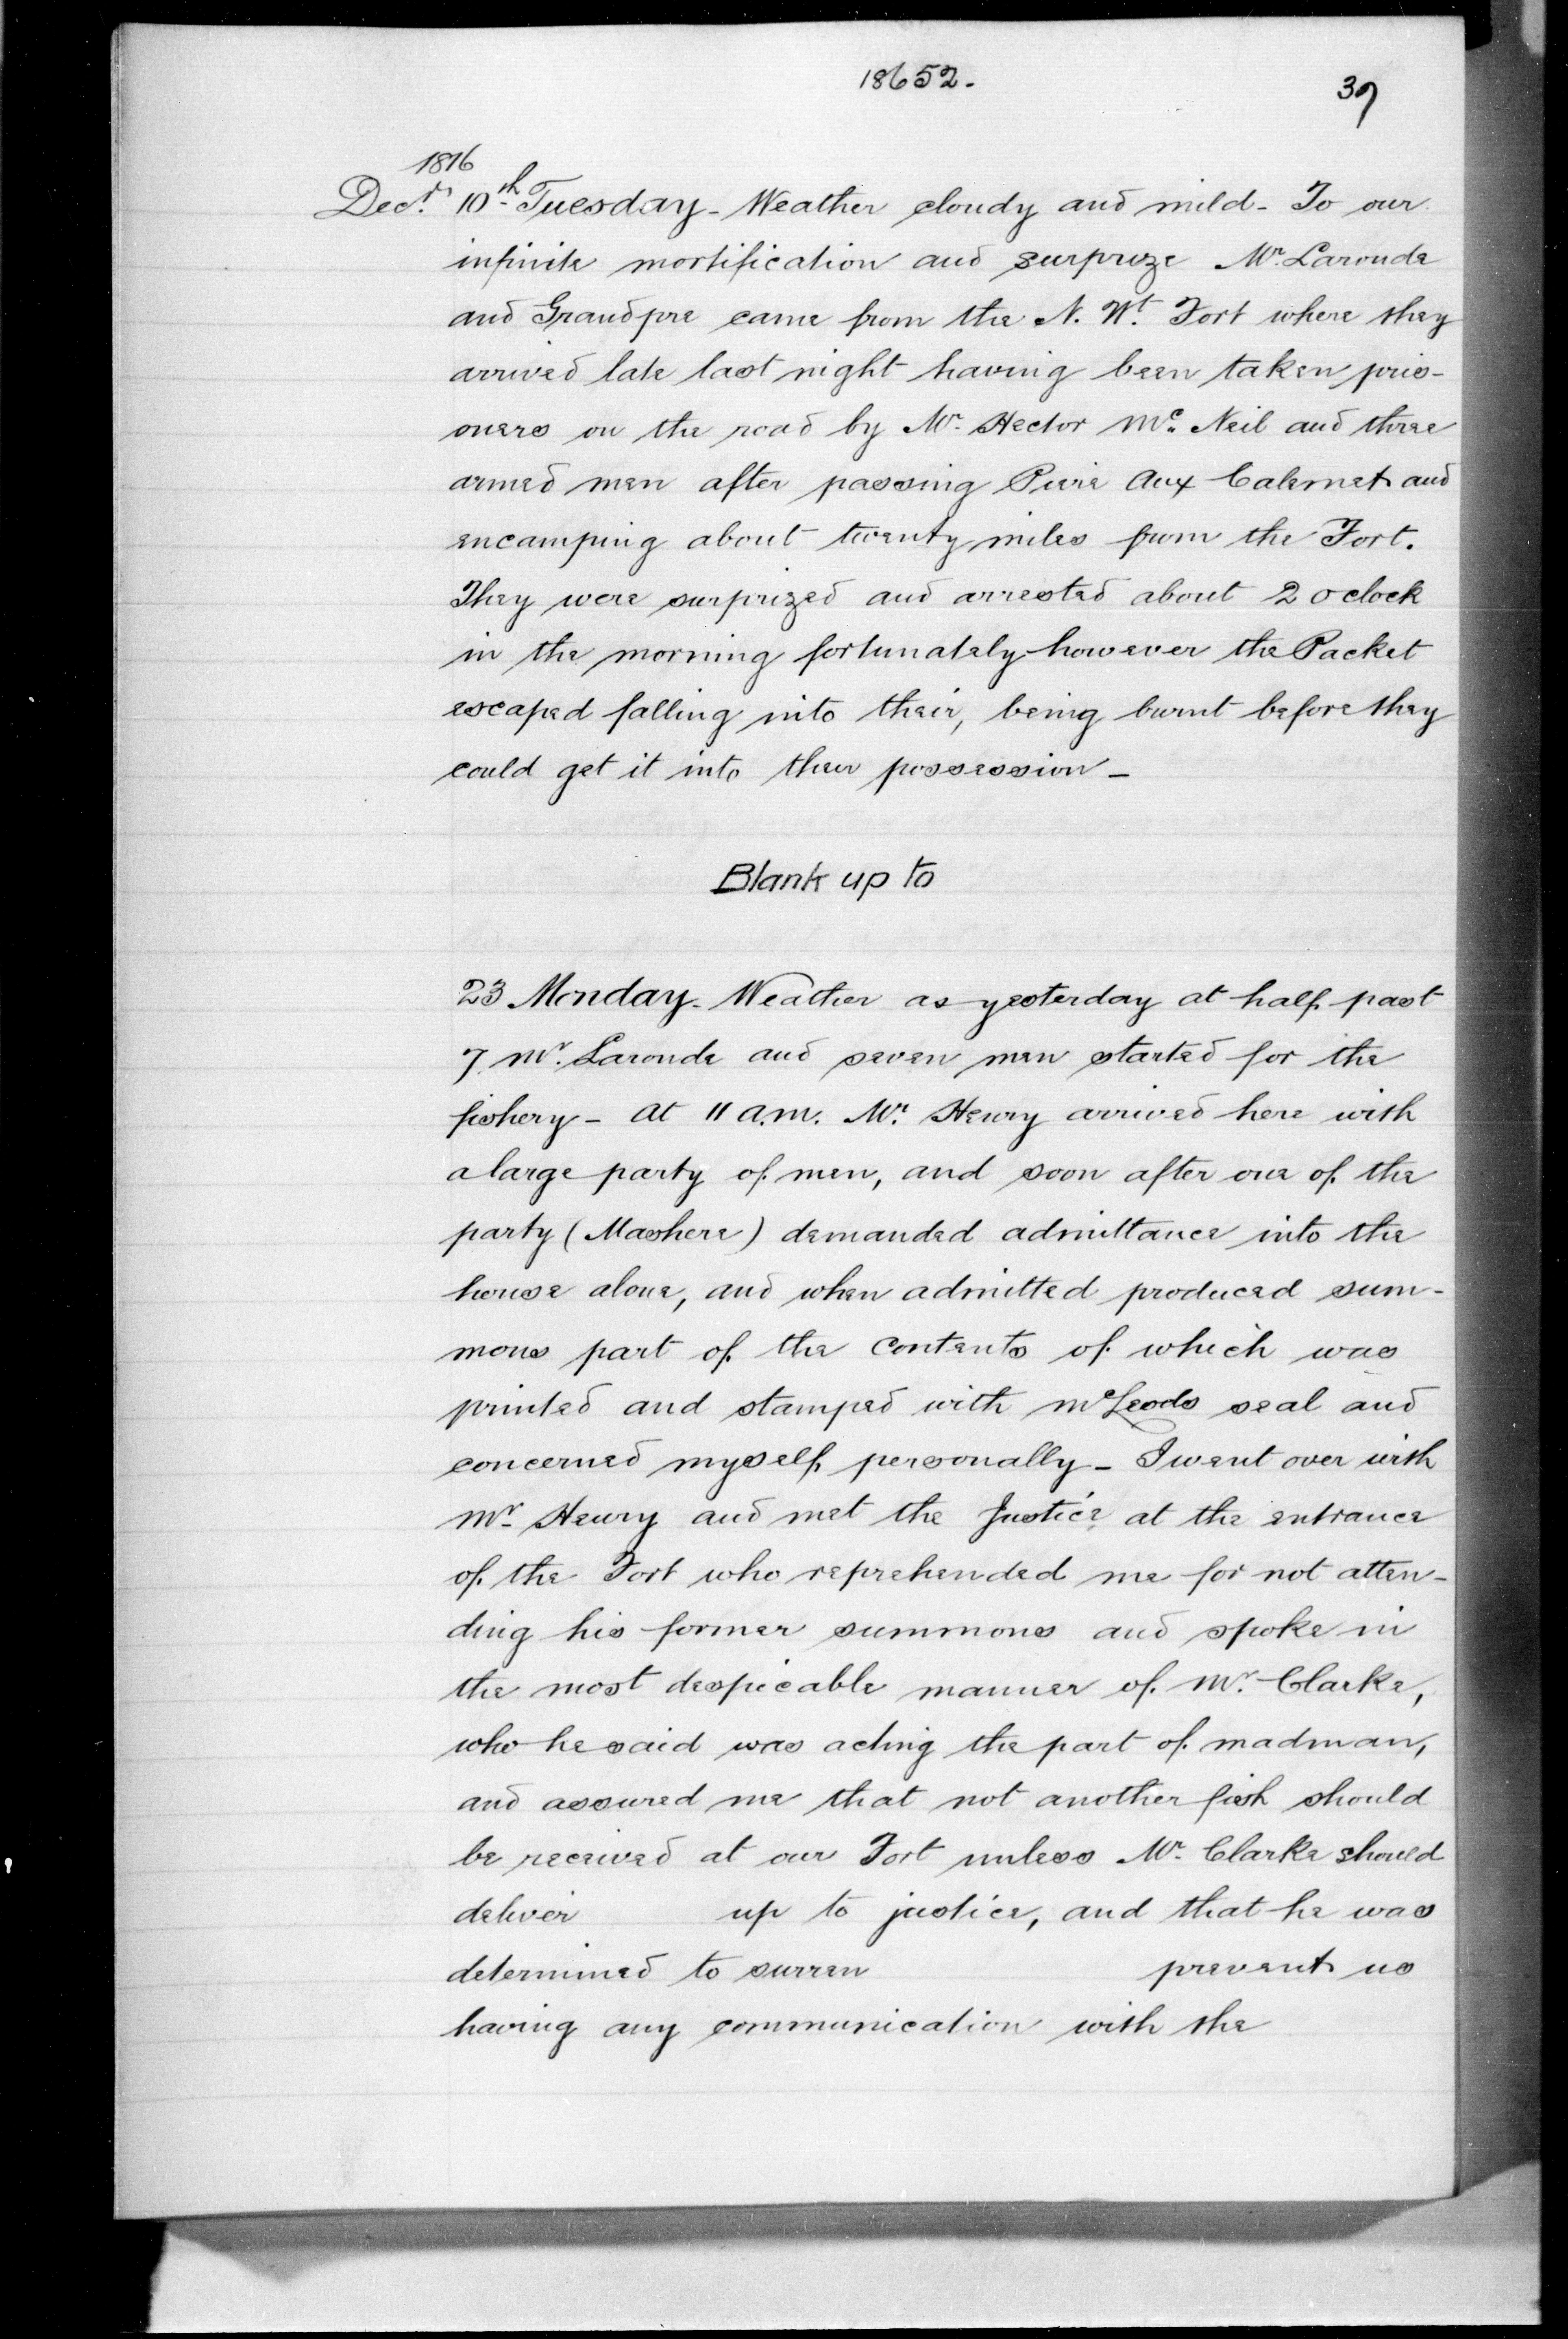 18652.
37
1816
Decr. 10th Tuesday - Weather cloudy and mild - To our
infinite mortification and surprize Mr. Laronde
and Grandpre came from the N. Wt. Fort where they
arrived late last night having been taken pris-
oners on the road by Mr. Hector Mc. Neil and three
armed men after passing Pierre Aux Calemet and
encamping about twenty miles from the Fort.
They were surprized and arrested about 2 oclock
in the morning fortunately however the Packet
escaped falling into their, being burnt before they
could get it into their possession -
Blank up to
23 Monday - Weather as yesterday at half past
7 Mr. Laronde and seven men started for the
fishery - at 11 a.m. Mr. Henry arrived here with
a large party of men, and soon after one of the
party (Mashere) demanded admittance into the
house alone, and when admitted produced sum-
mons part of the contents of which was
printed and stamped with McLeods seal and
concerned myself personally - I went over with
Mr. Henry and met the Justice at the entrance
of the Fort who reprehended me for not atten-
ding his former summons and spoke in
the most despicable manner of Mr. Clarke,
who he said was acting the part of madman,
and assured me that not another fish should
be received at our Fort unless Mr. Clarke should
deliver up to justice, and that he was
determined to surren prevent us
having any communication with the